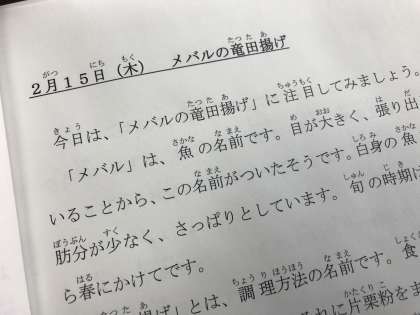 2月15日(木) メバルの竜田揚げ
今日は、「メバルの竜田揚げ」に注目してみましょう。
「メバル」は、魚の名前です。目が大きく、張り出
いることから、この名前がついたそうです。白身の魚
肪分が少なく、さっぱりとしています。旬の時期は
ら春にかけてです。
揚げ」とは、調理方法の名前です。食
れに片栗粉をま